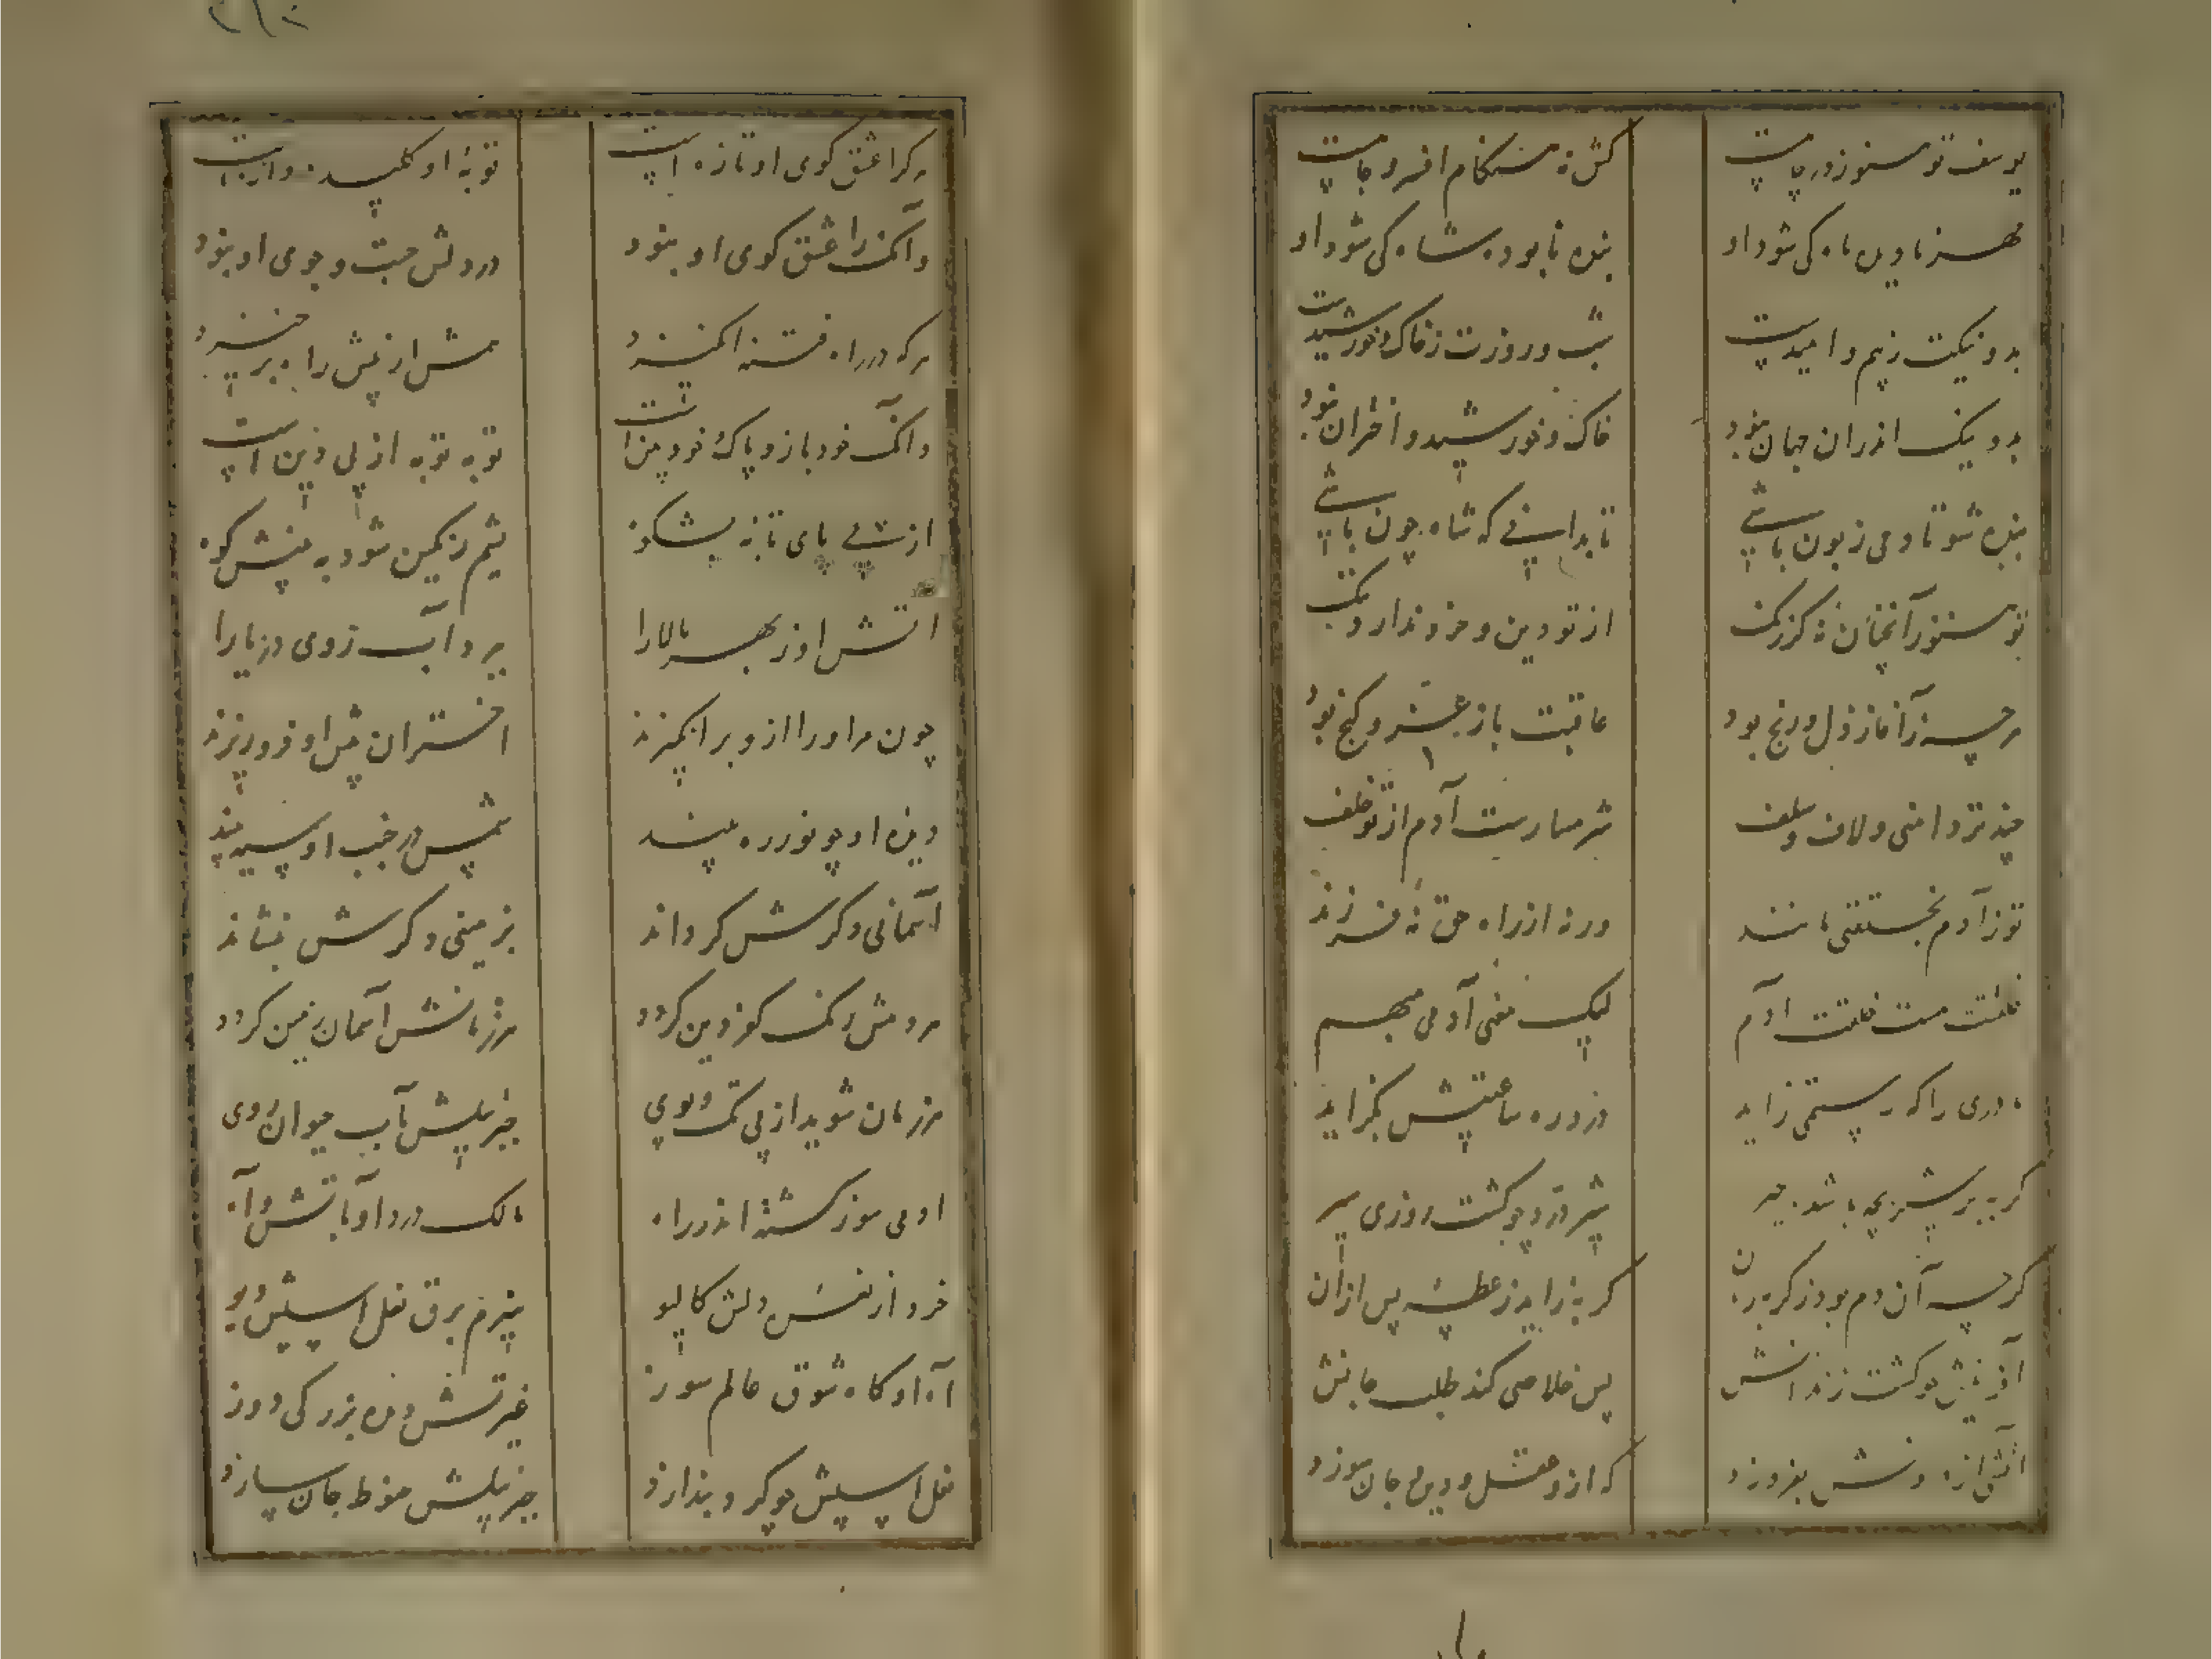 یوسف تو هنوز در چاهست کش نه هنگام افسر و جاهست
مهر نادیده ماه کی شود او بنده نابوده شاه کی شود او
بد و نیکت ز بیم و امیدست شب و روزت ز خاک و خورشیدست
بد و نیک اندران جهان نبود خاک و خورشید و اختران نبود
بنده شو تا دمی زبون باشی تا بدانی که شاه چون باشی
تو هنوز آنچنان نه کز رنگ از تو دین و خرد ندارد ننگ
هرچه ز آغاز ذل و رنج بود عاقبت باز عز و گنج بود
چند تردامنی و لاف و صلف شرمسارست آدم از تو خلف
تو ز آدم مانند ورنه از راه حق نه فرزند
خلقتت هست خلقت آدم لیک معنی آدمی مبهم
مادری را که رستمی زاید درد ره ساعتیش بگزاید
گربه بر شیر بچه باشد چیر شیر چو گشت روزی سیر
گرچه آن دم بود ز گربه گربه زاید ز عطسه پس ازان
آفرینش چو گشت زندانش پس خلاصی کند طلب جانش
آتشی از درونش بفروزد که ازو عقل و دین و جان سوزد
هر کرا عشق کوی او تازه است توبه او کلید دروازه است
وآنک را عشق کوی او نبود در دلش جست و جوی او نبود
هرکه در راه فتنه انگیزد از پیش راه برخیزد
وآنک خود باز و پاک خود بین است توبه توبه از پی دین است
پای رنگین شود به
آتش او ز بهر بالا را ببرد آب روی دریا را
چون مر او را ازو برانگیزند اختران پیش او فرو ریزند
دیده او چو نور ره بیند شمس در جنب او سیه بیند
آسمانی و گرش گرداند بر زمینی و گرش بنشاند
رنگ کوز دین گردد هر زمانش آسمان زمین گردد
هر زمان شوید از پی تک و پوی جبرئیلش بآب حیوان روی
او همی سوز گشته اندر راه مالک درد او بآتش و آه
خرد از نفس دلش کالیو هیزم برق نعل اسپش دیو
آه او گاه شوق عالم سوز غیرتش دیده بزرگی دوز
نعل اسپش چو گرد بندازد جبرئیلش حنوط جان سازد